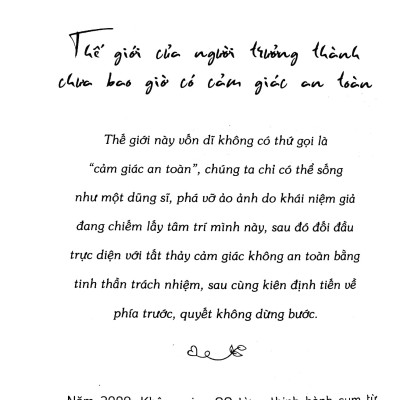 Thế giới của người trưởng thành
chưa bao giờ có cảm giác an toàn
Thế giới này vốn dĩ không có thứ gọi là
“cảm giác an toàn”, chúng ta chỉ có thể sống
như một dũng sĩ, phá vỡ ảo ảnh do khái niệm giả
đang chiếm lấy tâm trí mình này, sau đó đối đầu
trực diện với tất thảy cảm giác không an toàn bằng
tinh thần trách nhiệm, sau cùng kiên định tiến về
phía trước, quyết không dừng bước.